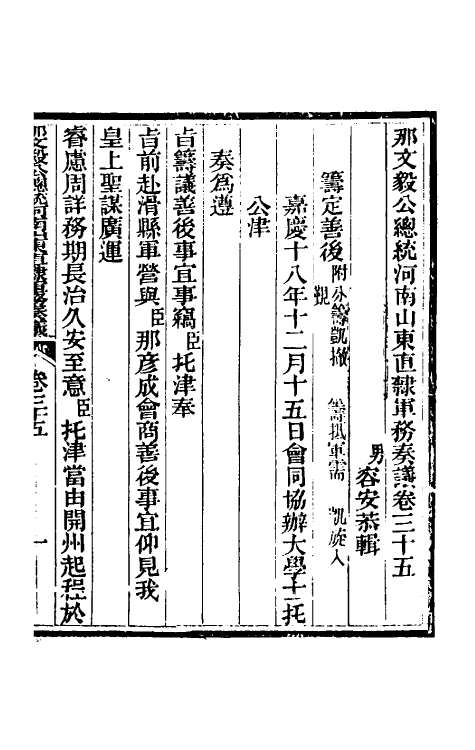 那文毅公總統河南山東直隸軍務奏議卷三十五
男容安恭輯
籌定善後附分籌凱撤 籌撥軍需 凱旋入覲
嘉慶十八年十二月十五日會同協辦大學士托
公津
奏為遵
旨籌議善後事宜事竊臣托津奉
旨前赴滑縣軍營與臣那彥成會商善後事宜仰見我
皇上聖謀廣運
睿慮周詳務期長治久安至意臣托津當由開州起程於
那文毅公總統河南山東直隸軍務奏議 卷三十五 一